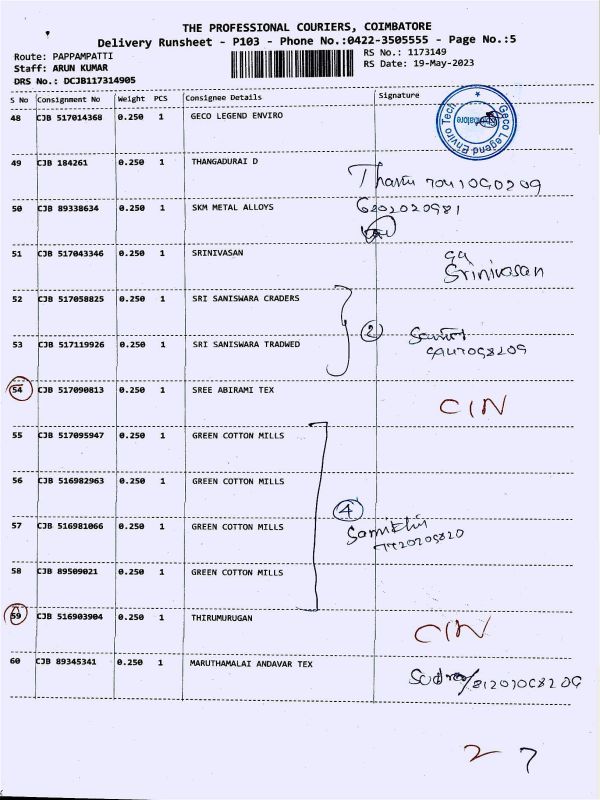 THE PROFESSIONAL COURIERS, COIMBATORE
Delivery Runsheet - P103 - Phone No.:0422-3505555 - Page No.:5
Route: PAPPAMPATTI RS No.: 1173149
Staff: ARUN KUMAR RS Date: 19-May-2023
DRS No.: DCJB117314905
S No Consignment No Weight PCS Consignee Details Signature
48 CJB 517014368 0.250 1 GECO LEGEND ENVIRO Geco Legend Enviro Tech Coimbatore
49 CJB 184261 0.250 1 THANGADURAI D
50 CJB 89338634 0.250 1 SKM METAL ALLOYS
51 CJB 517043346 0.250 1 SRINIVASAN Srinivasan
52 CJB 517058825 0.250 1 SRI SANISWARA CRADERS
2
53 CJB 517119926 0.250 1 SRI SANISWARA TRADWED
54 CJB 517090813 0.250 1 SREE ABIRAMI TEX CIN
55 CJB 517095947 0.250 1 GREEN COTTON MILLS
56 CJB 516982963 0.250 1 GREEN COTTON MILLS
4
57 CJB 516981066 0.250 1 GREEN COTTON MILLS
58 CJB 89509021 0.250 1 GREEN COTTON MILLS
59 CJB 516903904 0.250 1 THIRUMURUGAN CIN
60 CJB 89345341 0.250 1 MARUTHAMALAI ANDAVAR TEX
2 7